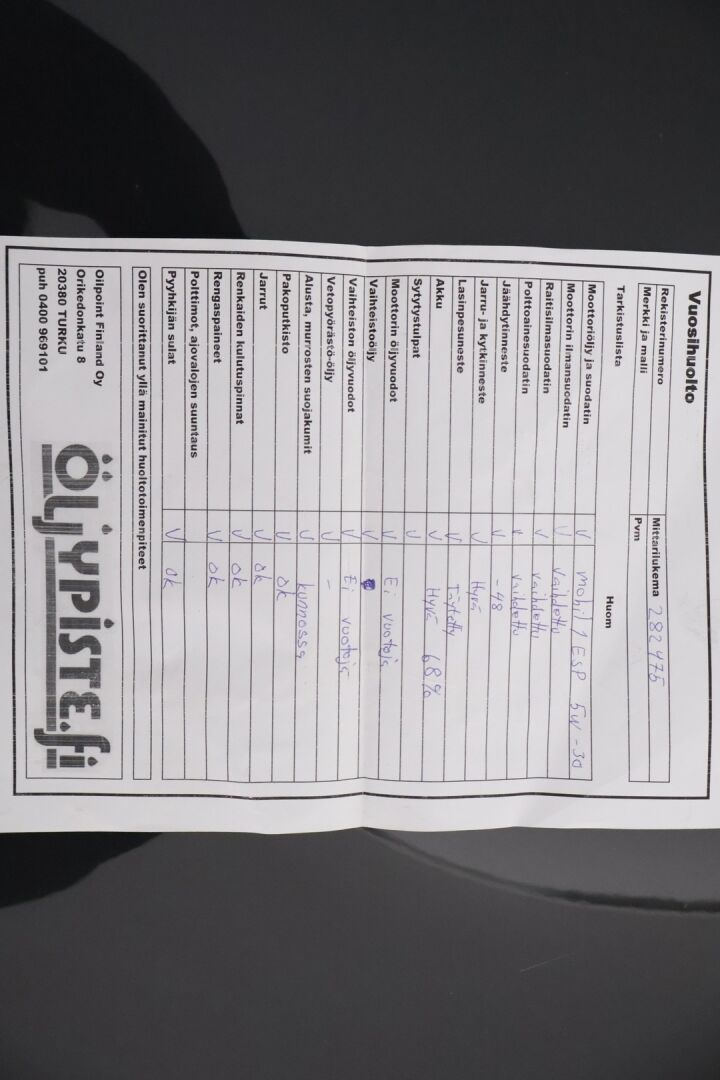 Vuosihuolto
Rekisterinumero Mittarilukema 282475
Merkki ja malli Pvm
Tarkistuslista Huom
Moottoriöljy ja suodatin V Mobil 1 ESP 5W-30
Moottorin ilmansuodatin V vaihdettu
Raitisilmasuodatin V vaihdettu
Polttoainesuodatin V vaihdettu
Jäähdytinneste V -48
Jarru- ja kytkinneste V Hyvä
Lasinpesuneste V Täytetty
Akku V Hyvä 68%
Sytytystulpat V
Moottorin öljyvuodot V Ei vuotoja
Vaihteistoöljy V
Vaihteiston öljyvuodot V Ei vuotoja
Vetopyörästö-öljy V -
Alusta, murrosten suojakumit V kunnossa
Pakoputkisto V ok
Jarrut V ok
Renkaiden kulutuspinnat V ok
Rengaspaineet V ok
Polttimot, ajovalojen suuntaus
Pyyhkijän sulat V ok
Olen suorittanut yllä mainitut huoltotoimenpiteet
Oilpoint Finland Oy
Orikedonkatu 8
20380 TURKU
puh 0400 969101
ÖLJYPISTE.fi